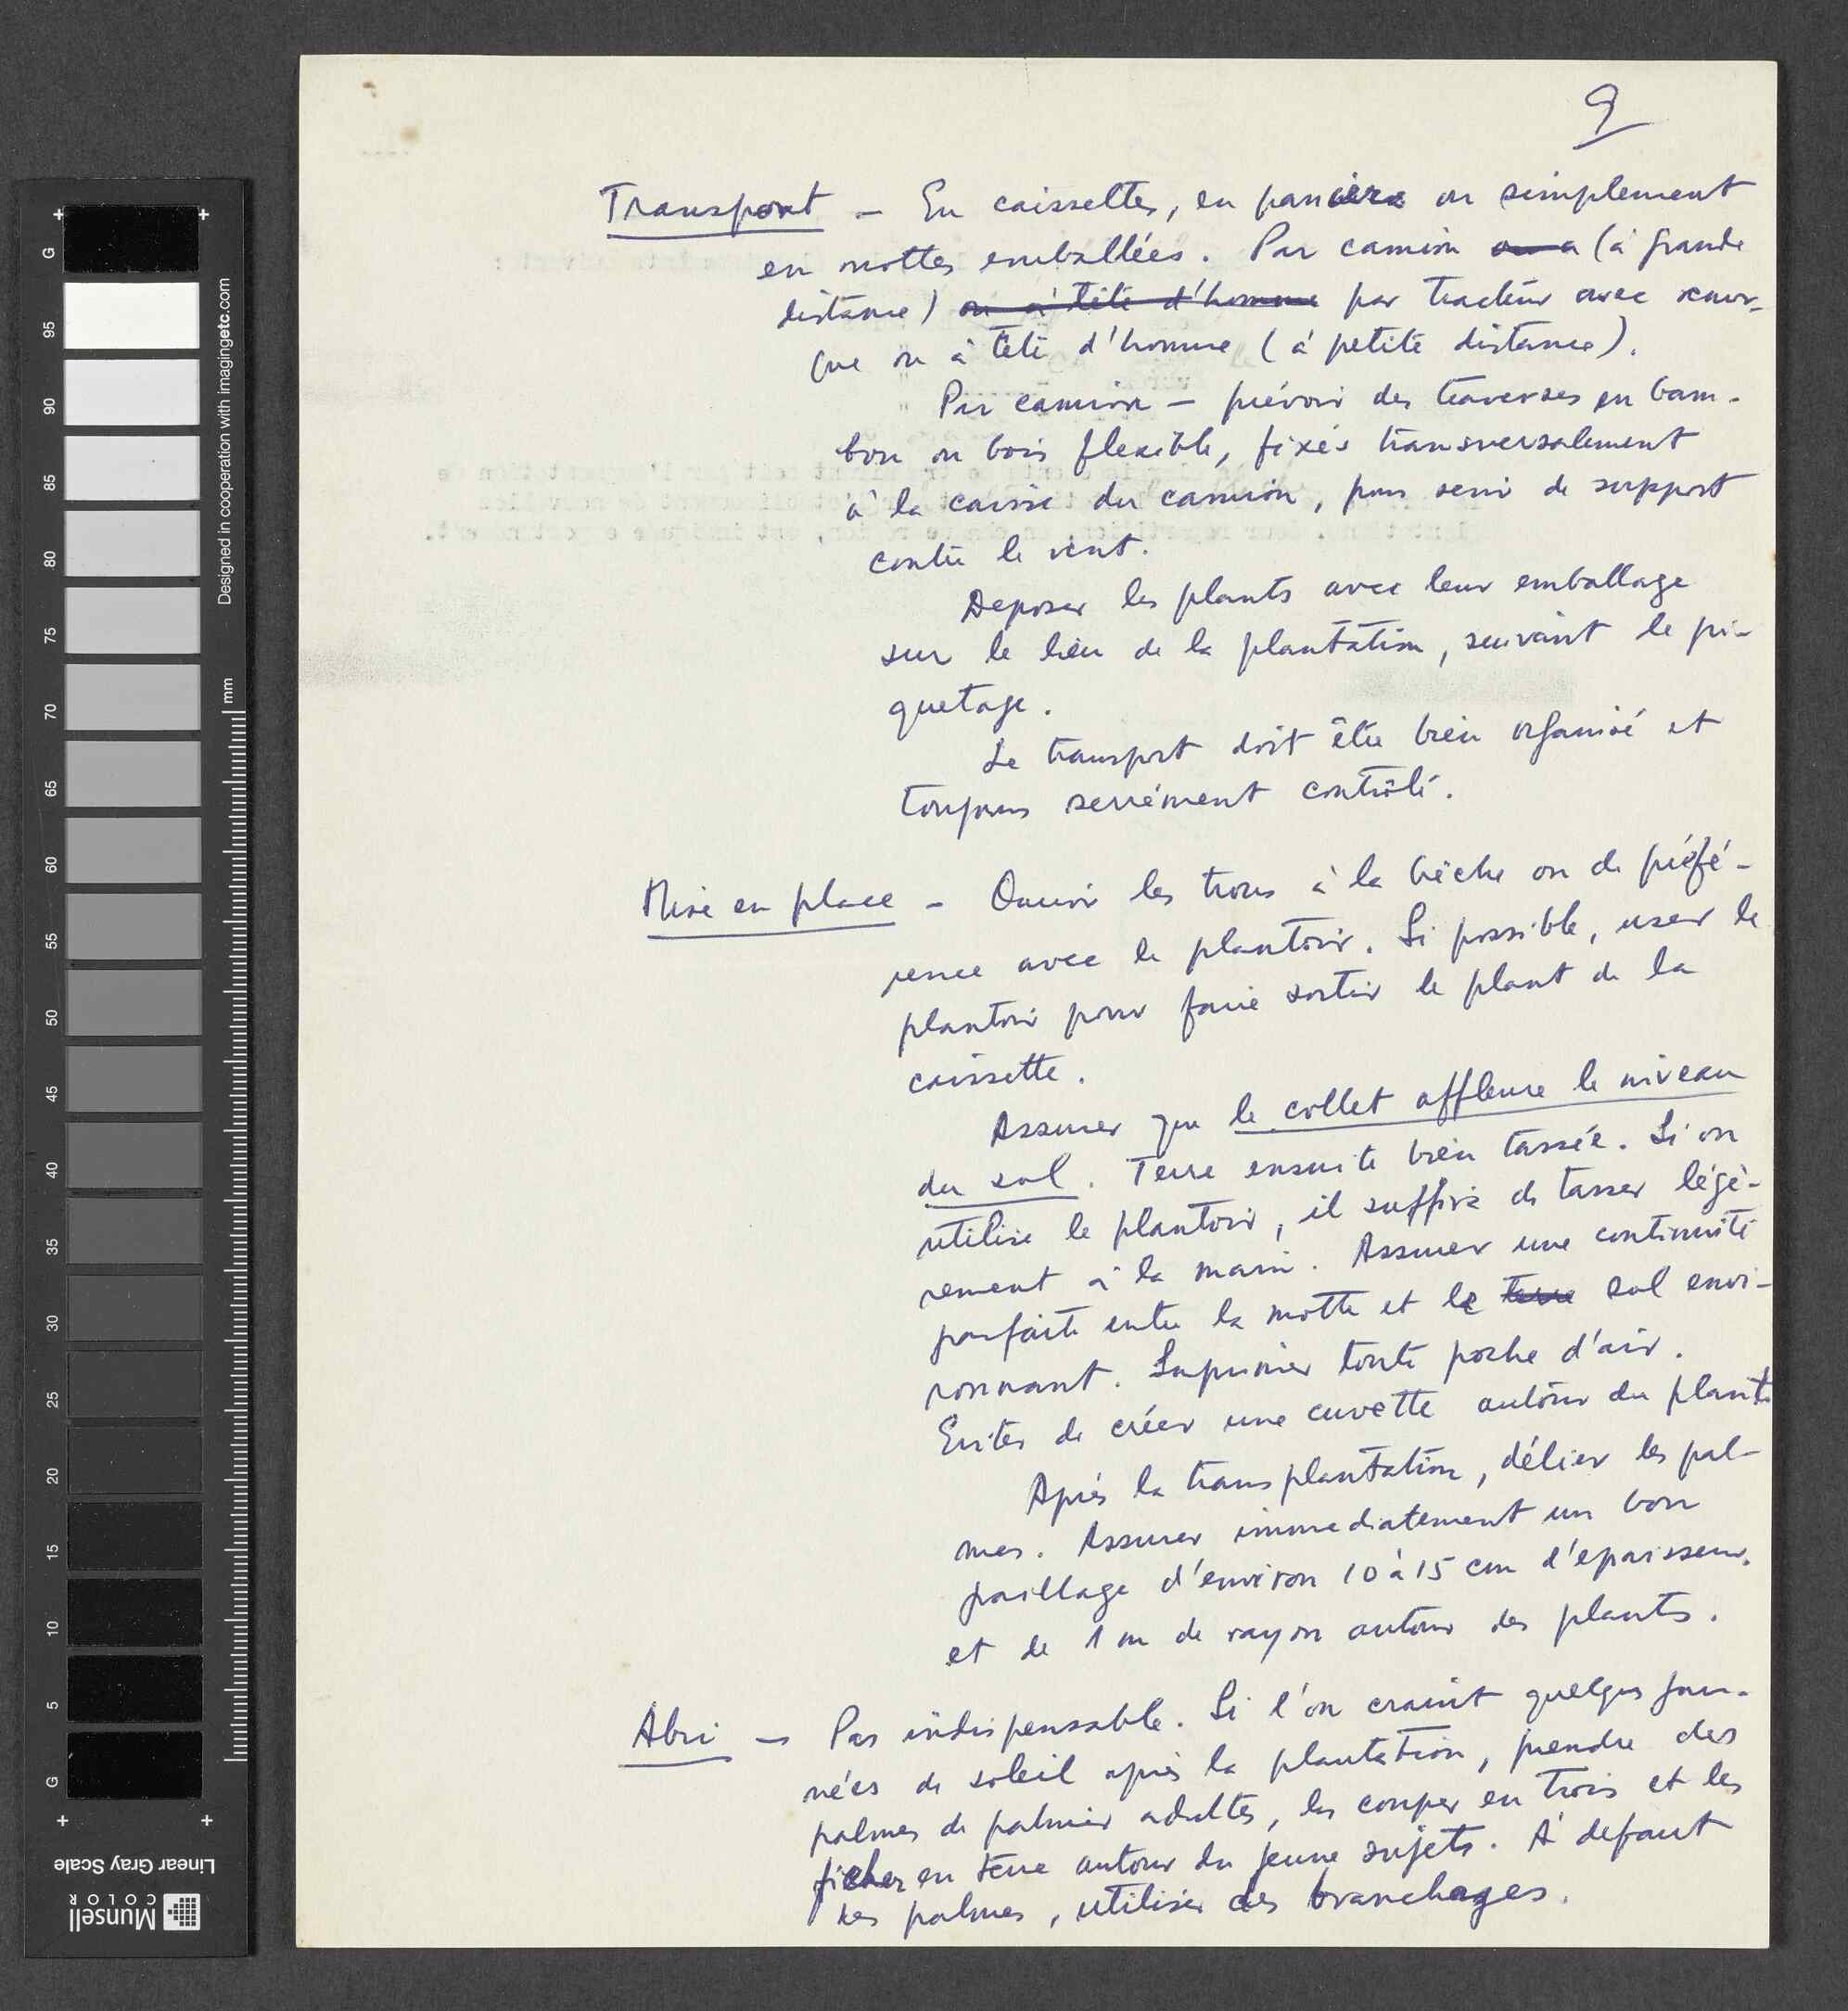 9
Transport - En caissettes, en paniers ou simplement
en mottes emballées. Par camion ou a (à grande
distance) ou à tête d'homme par tracteur avec remor-
que ou à tête d'homme (à petite distance).
Par camion - prévoir des traverses en bam-
bou ou bois flexible, fixés transversalement
à la caisse du camion, pour servir de support
contre le vent.
Deposer les plants avec leur emballage
sur le lieu de la plantation, suivant le pi-
quetage.
Le transport doit être bien organisé et
toujours serrément contrôlé.
Mise en place - Ouvrir les trous à la bêche ou de préfé-
rence avec le plantoir. Si possible, user le
plantoir pour faire sortir le plant de la
caissette.
Assurer que le collet affleure le niveau
du sol. Terre ensuite bien tassée. Si on
utilise le plantoir, il suffira de tasser légè-
rement à la main. Assurer une continuité
parfaite entre la motte et le terre sol envi-
ronnant. Suprimer toute poche d'air.
Eviter de créer une cuvette autour du plant.
Après la transplantation, délier les pal-
mes. Assurer immediatement un bon
paillage d'environ 10 à 15 cm d'epaisseur,
et de 1 m de rayon autour des plants.
Abri - Pas indispensable. Si l'on craint quelques jour-
nées de soleil après la plantation, prendre des
palmes de palmier adultes, les couper en trois et les
ficher en terre autour du jeune sujets. A défaut
des palmes, utiliser des branchages.
G
95
90
85
80
75
70
65
60
55
50
45
40
35
30
25
20
15
10
5
G
Designed in cooperation with imagingetc.com
mm
Linear Gray Scale
Munsell
COLOR